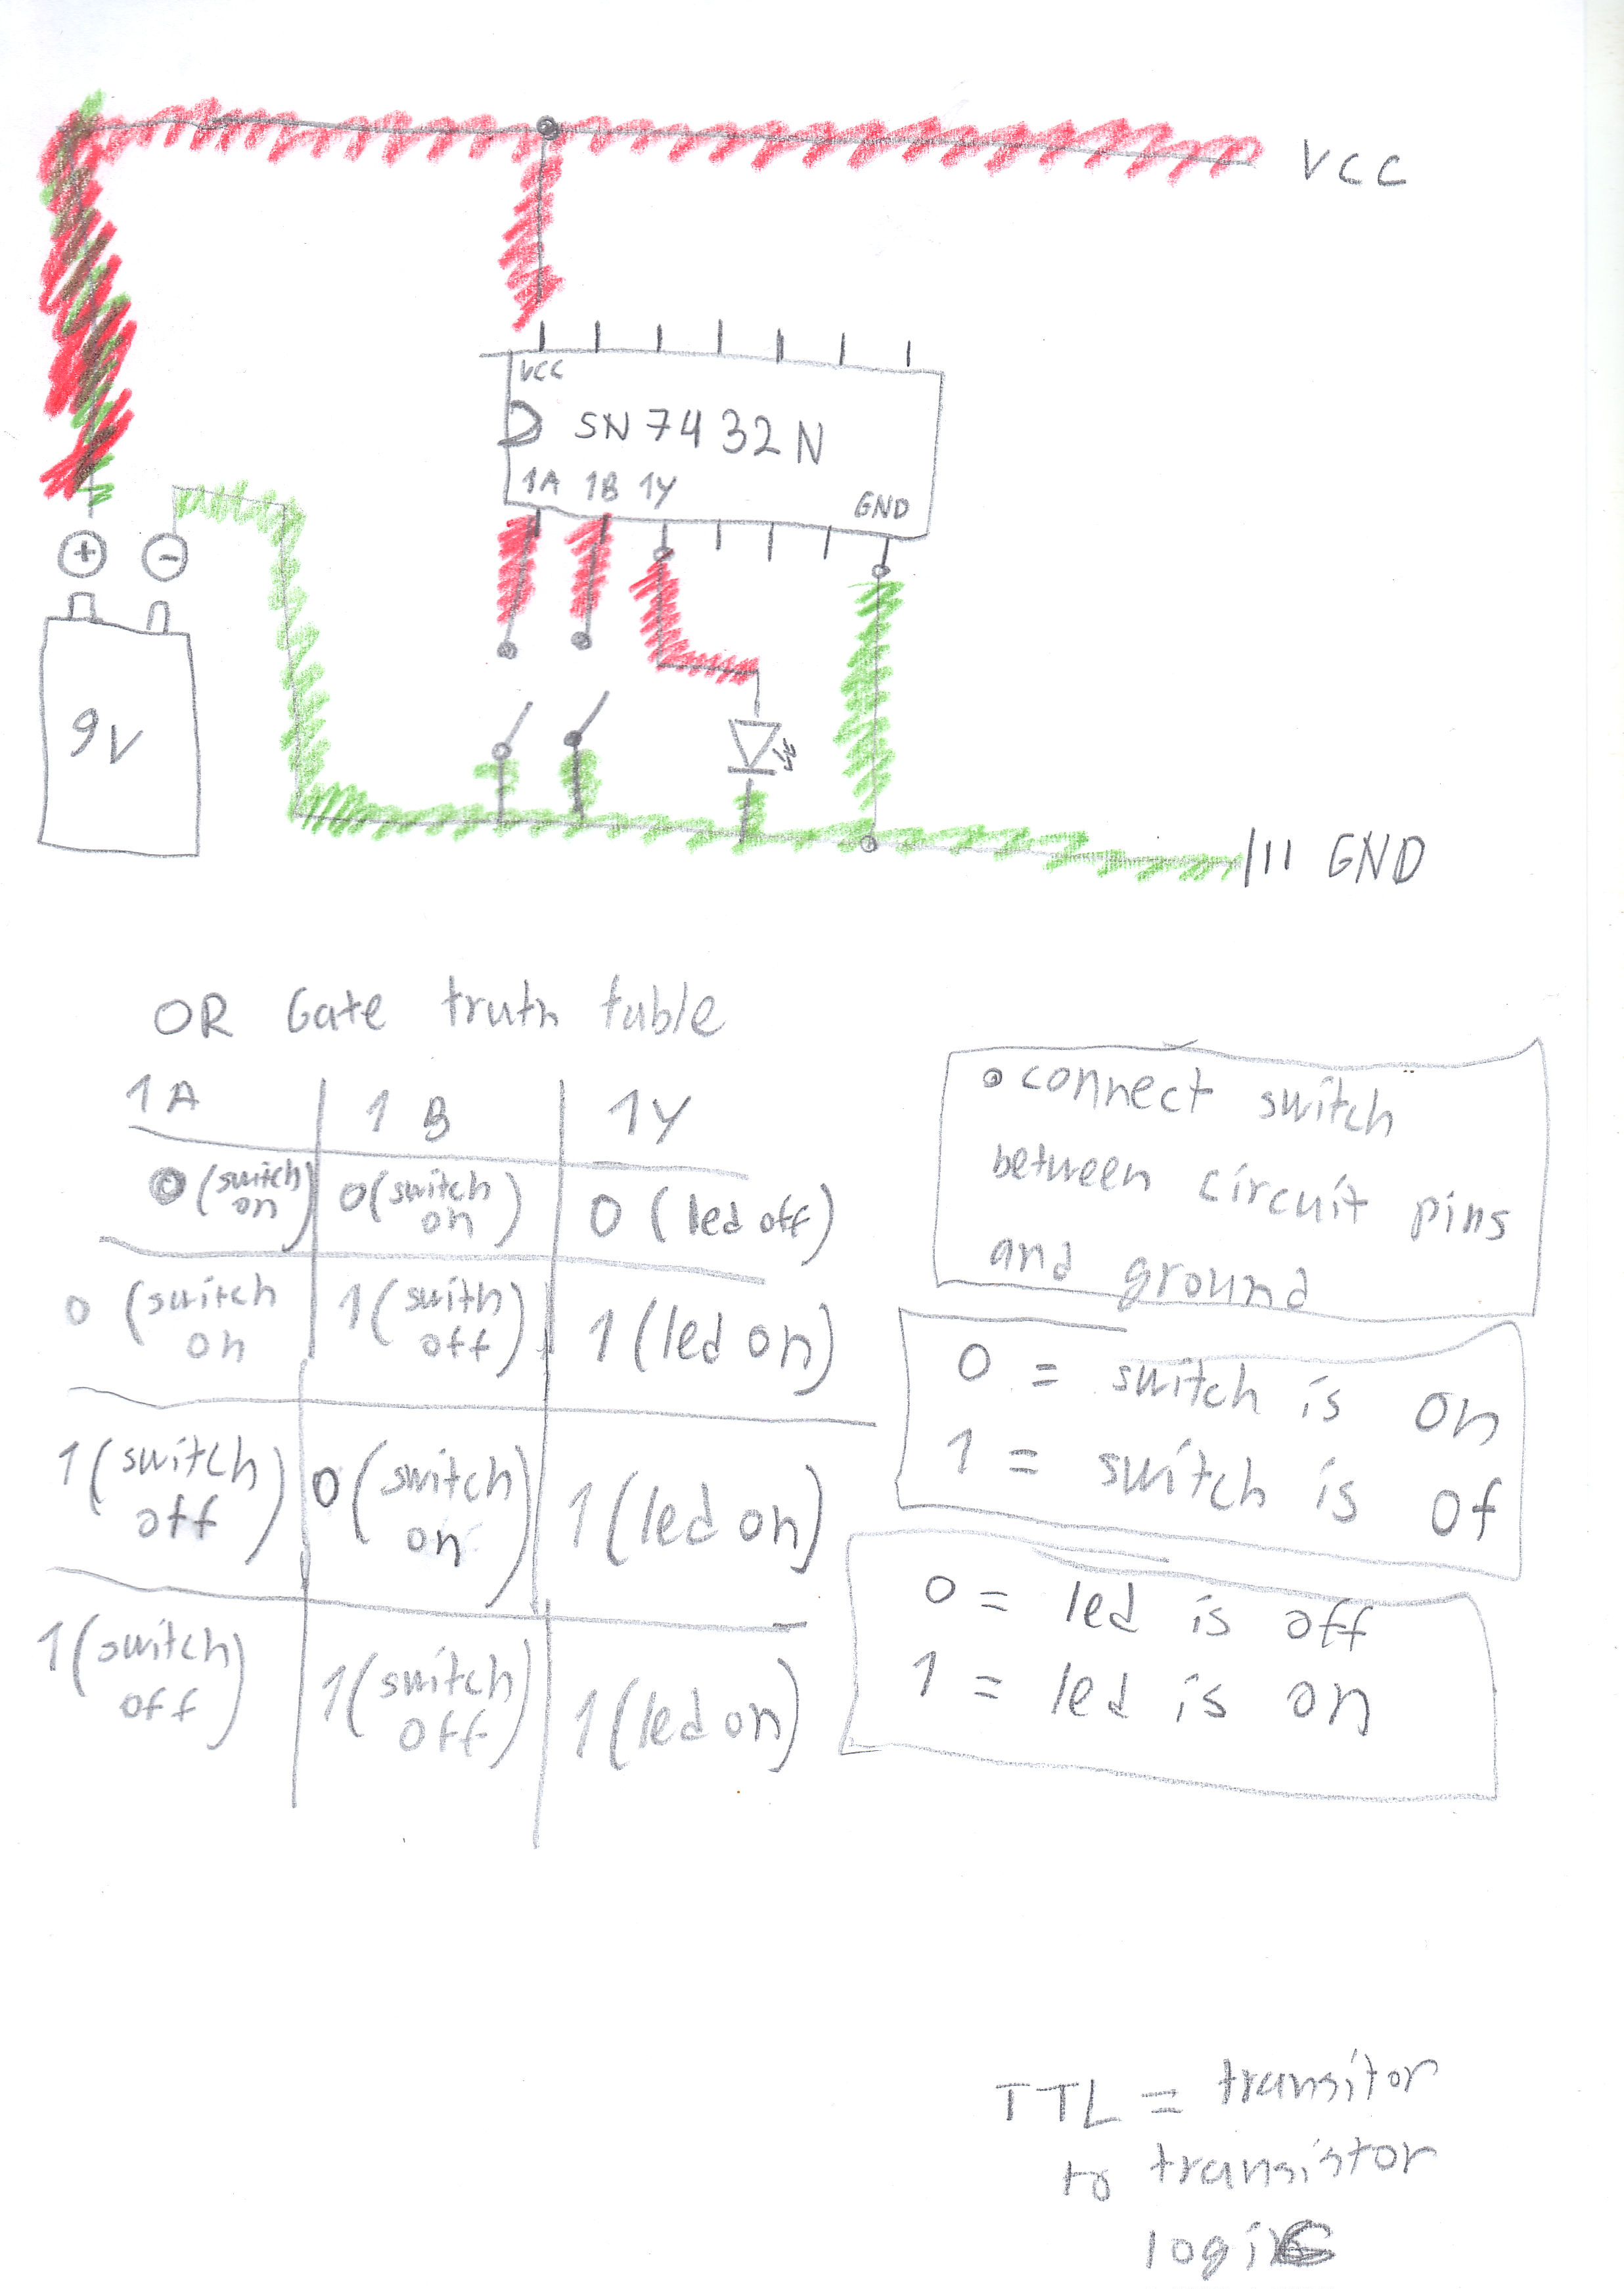 VCC
VCC
SN7432N
1A 1B 1Y
GND
+ -
9V
GND
OR Gate truth table
1A 1B 1Y
0 (switch on) 0 (switch on) 0 (led off)
0 (switch on 1 (swith off) 1 (led on)
1 (switch off) 0 (switch on) 1 (led on)
1 (switch off) 1 (switch off) 1 (led on)
connect switch
between circuit pins
and ground
0 = switch is on
1 = switch is of
0 = led is off
1 = led is on
TTL = transitor
to transistor
logic